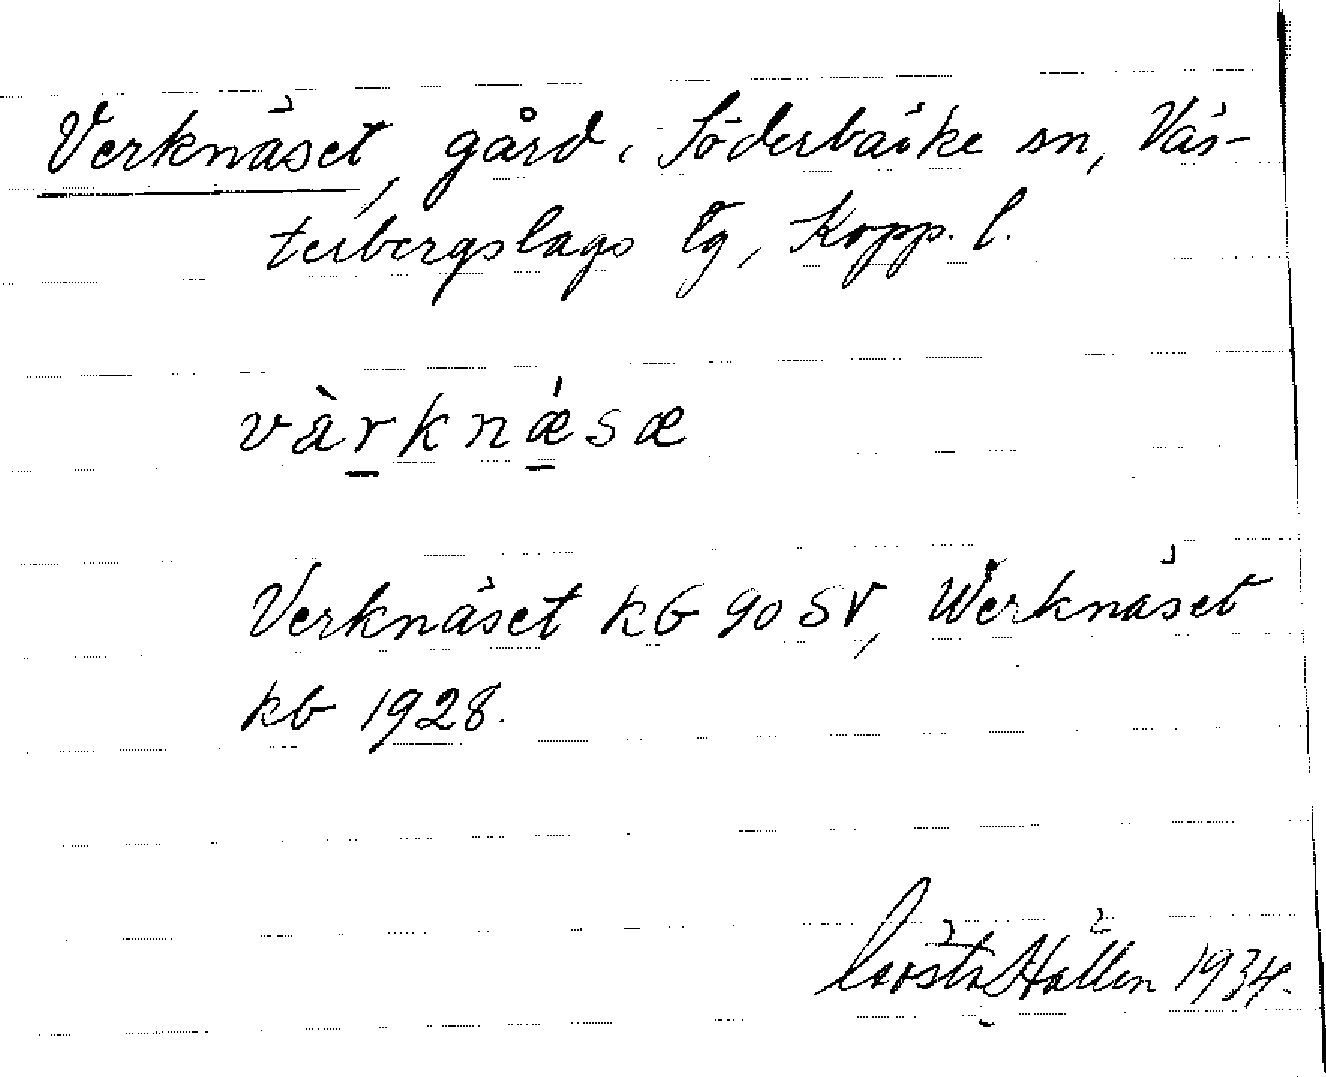 Verknäset, gård, Söderbärke sn, Väs-
terbergslags tg, Kopp. l.
vàrknǽsæ
Verknäset kb 90 SV, Werknäset
kb 1928.
Gösta Hallén 1934.